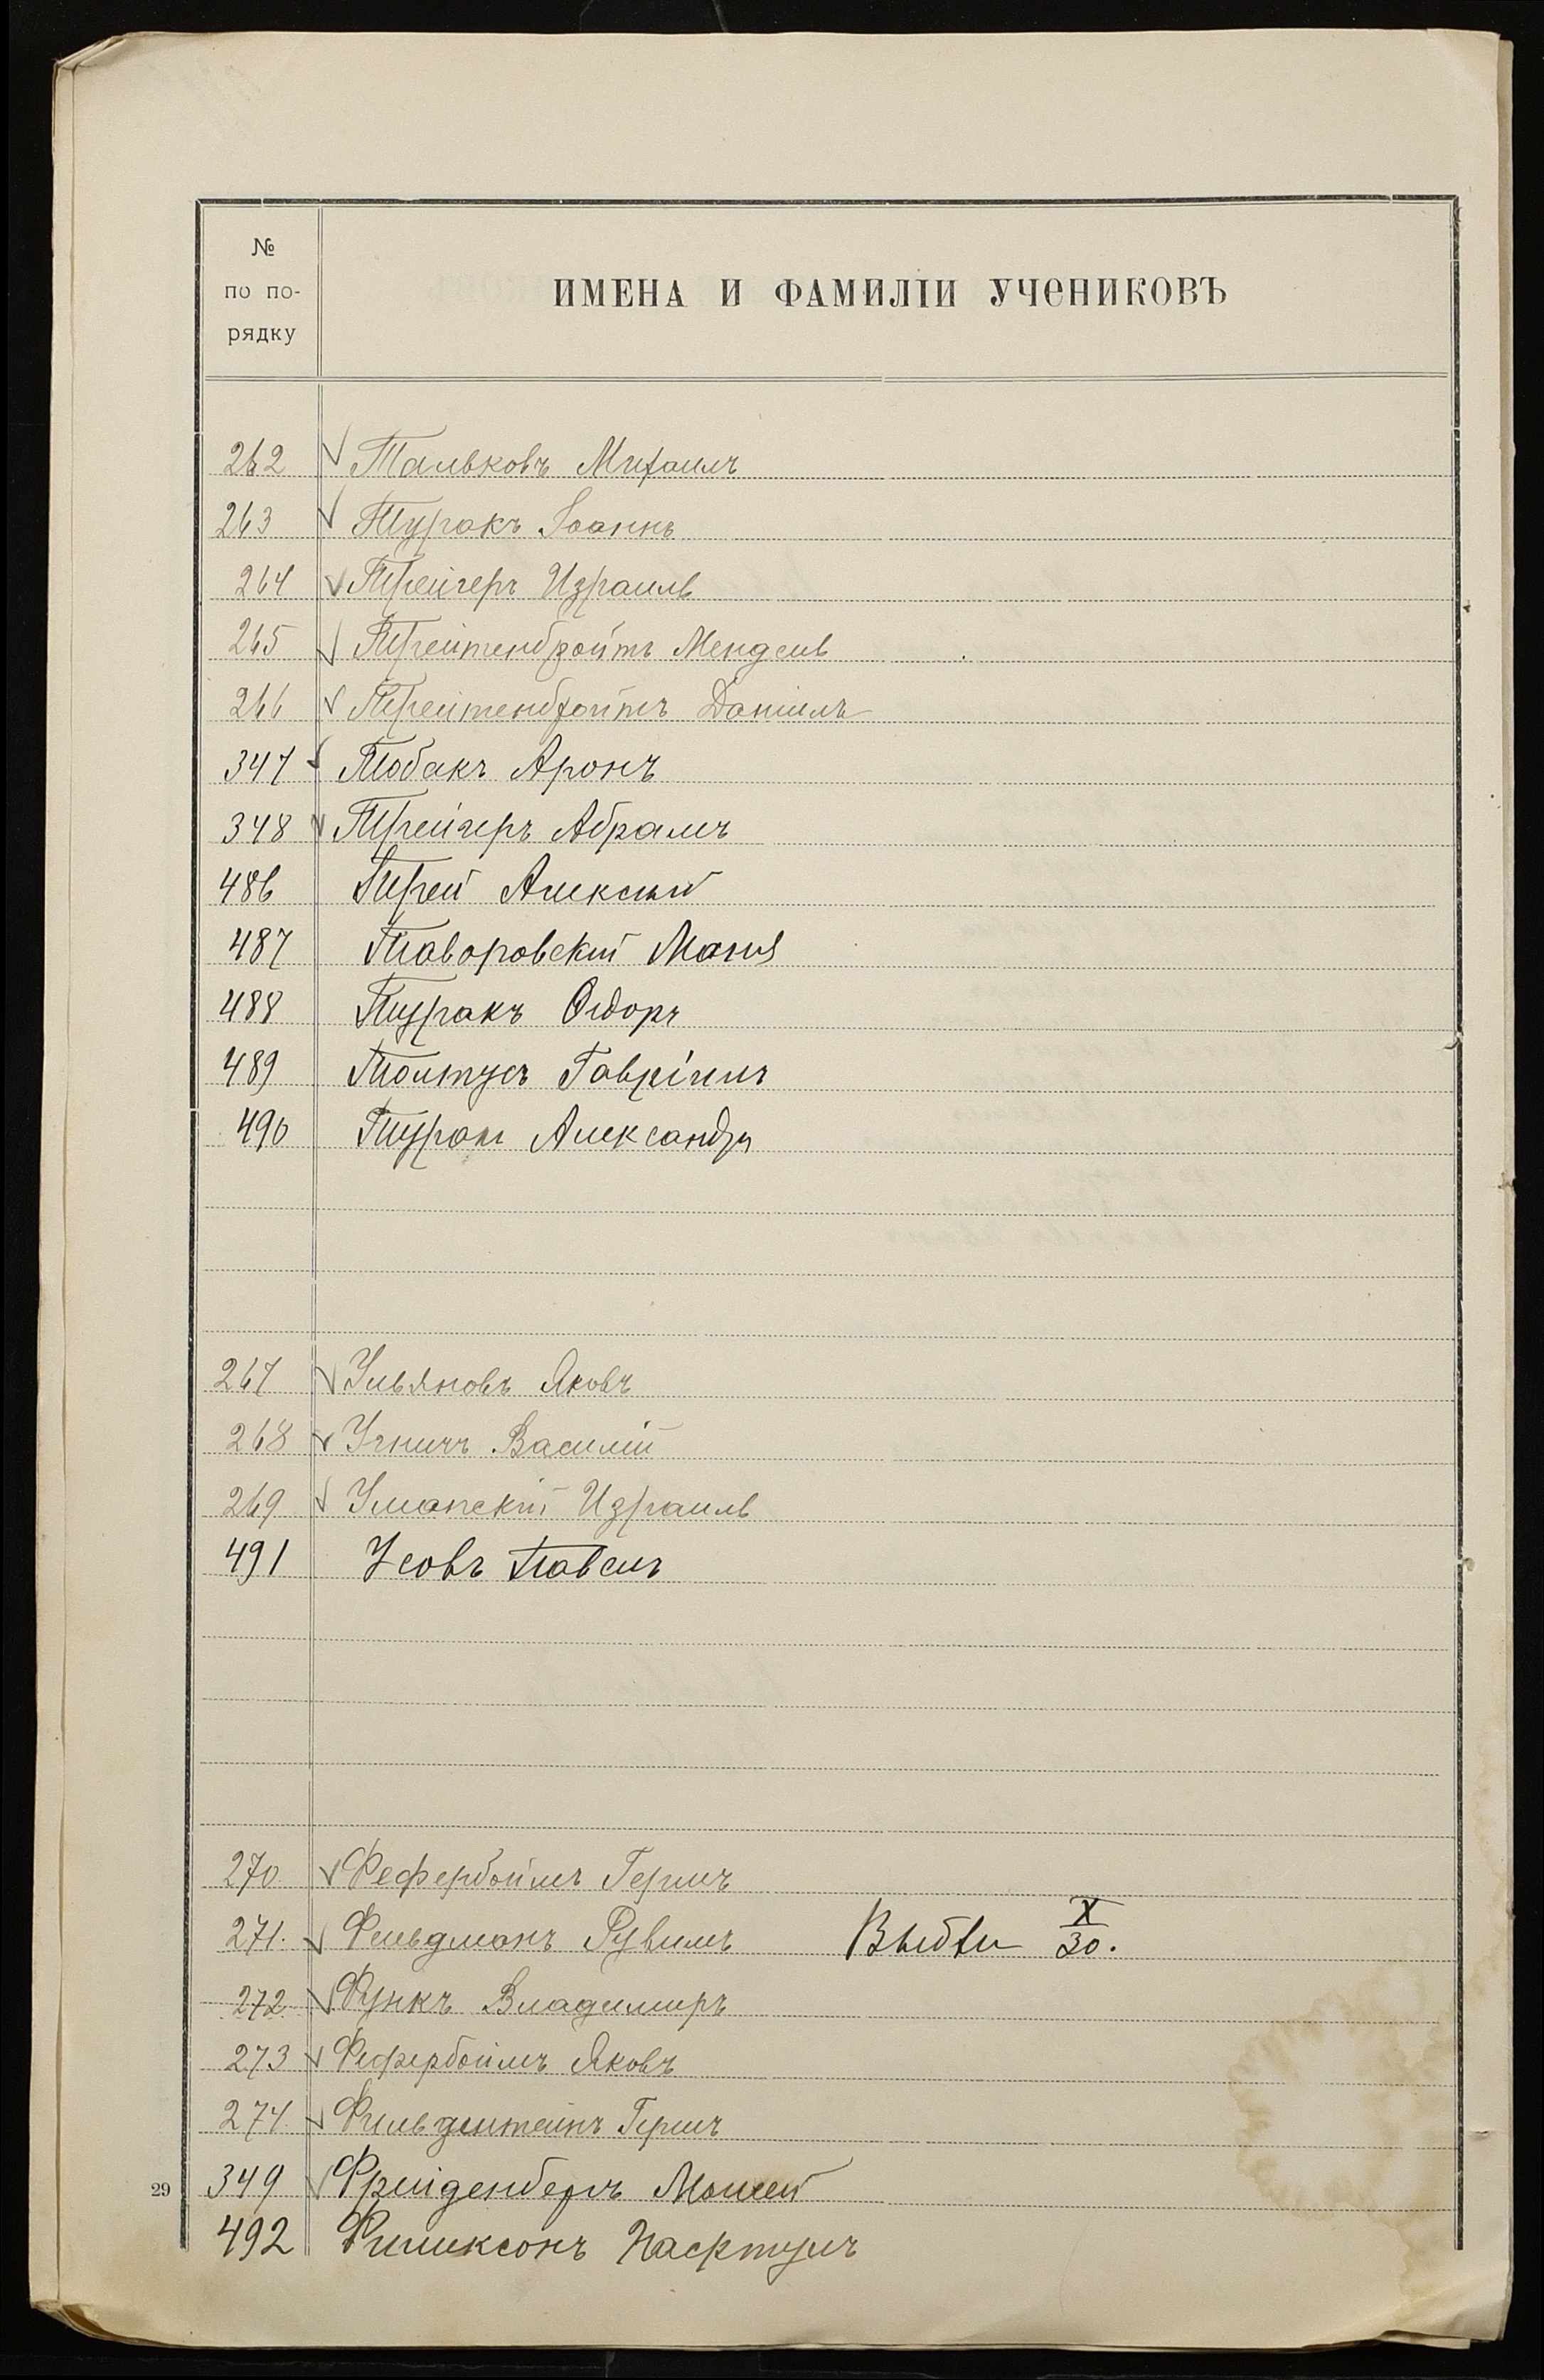 №
по по-
рядку
ИМЕНА И ФАМИЛІИ УЧЕНИКОВЪ
262 Тальковъ Михаилъ
263 Туракъ Іоаннъ
264 Трейгеръ Израиль
265 Трейтенбройтъ Мендель
266 Трейтенбройтъ Даніилъ
347 Тобакъ Аронъ
348 Трейгеръ Абрамъ
486 Трей Алексѣй
487 Таворовскій
488 Туракъ Ѳедоръ
489 Толтусъ Гавріилъ
490 Туракъ Александръ
267 Ульяновъ Яковъ
268 Василій
269 Уманскій Израиль
491 Усовъ Павелъ
270 Фефербоймъ Гершъ
271. Фельдманъ Рувимъ Выбылъ X/30.
272 Функъ Владимиръ
273 Фефербоймъ Яковъ
274 Гершъ
29
349 Фрейденбергъ Моисей
492 Филиксонъ